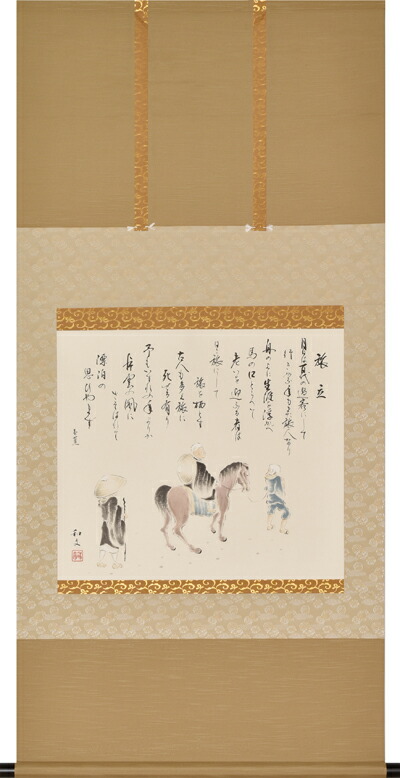 旅立
月日は百代の過客にして
行きかふ年も又旅人なり
舟の上に生涯を浮かべ
馬の口とらへて
老いを迎ふる者は
日々旅にして
旅を栖とす
古人も多く旅に
死せる有り
予もいづれの年よりか
片雲の風に
さそはれて
漂泊の
思ひやまず
芭蕉
和文